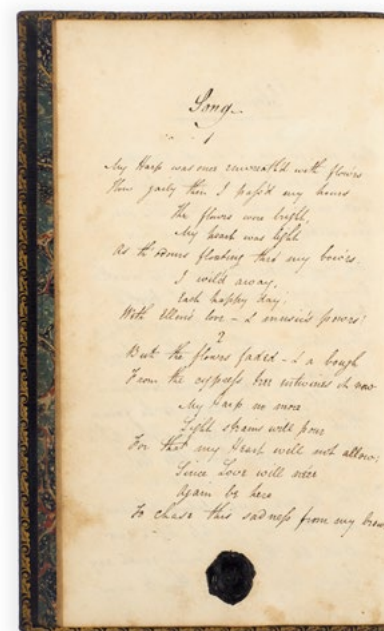 Song
1
My Harp was once enwreath'd with flow'rs
How gaily then I pass'd my hours
The flowers were bright,
My heart was light
As th' odours floating thro' my bow'rs.
I wil'd away,
Each happy day;
With Ellen's love – & music's powers!
2
But the flowers faded – & a bough
From the cypress tree intwines it now
My Harp no more
Light strains will pour
For that my Heart will not allow;
Since Love will ne'er
Again be here
To chase this sadness from my brow